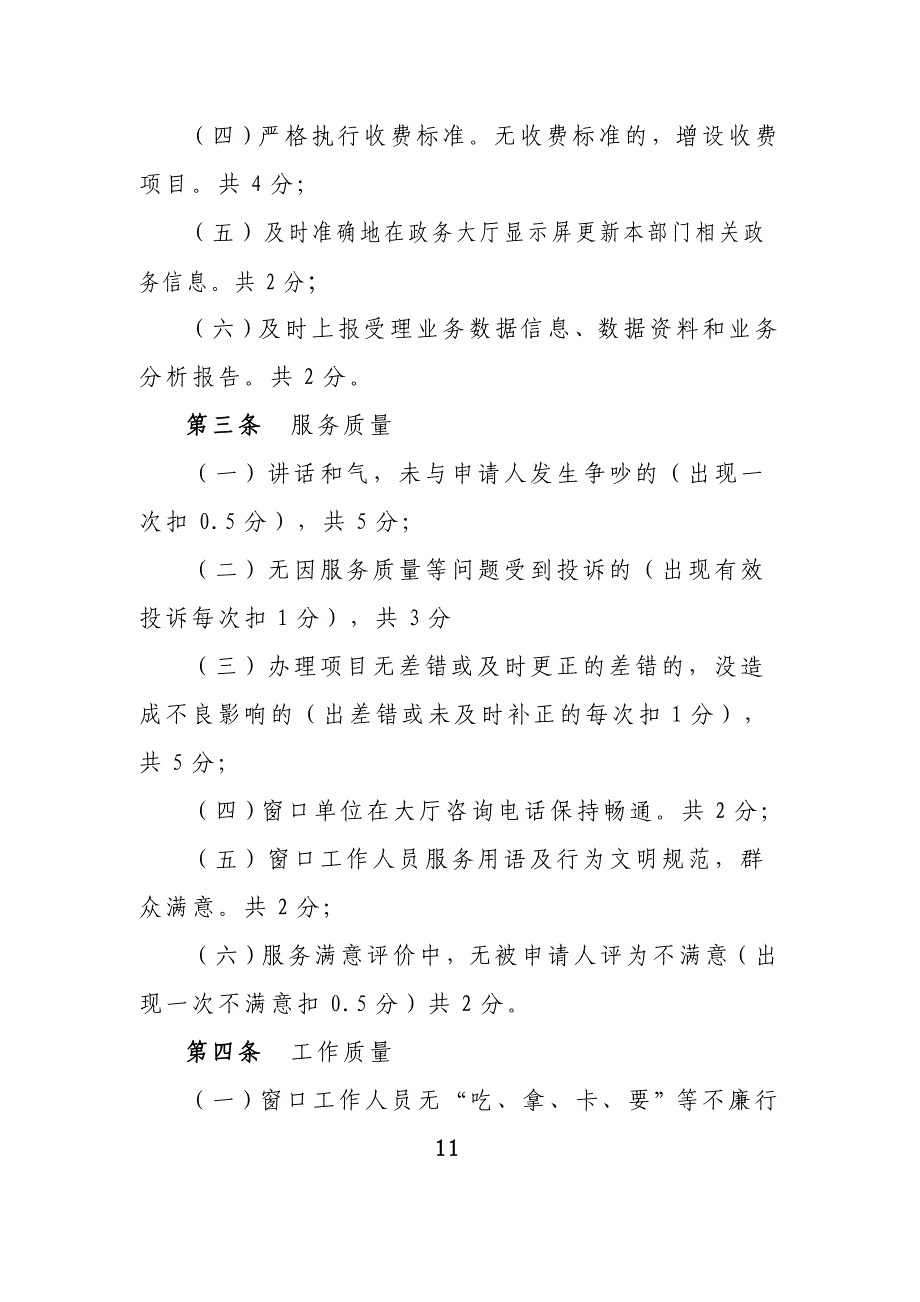 （四）严格执行收费标准。无收费标准的，增设收费
项目。共 4 分；
（五）及时准确地在政务大厅显示屏更新本部门相关政
务信息。共 2 分；
（六）及时上报受理业务数据信息、数据资料和业务
分析报告。共 2 分。
第三条　服务质量
（一）讲话和气，未与申请人发生争吵的（出现一
次扣 0.5 分），共 5 分；
（二）无因服务质量等问题受到投诉的（出现有效
投诉每次扣 1 分），共 3 分
（三）办理项目无差错或及时更正的差错的，没造
成不良影响的（出差错或未及时补正的每次扣 1 分），
共 5 分；
（四）窗口单位在大厅咨询电话保持畅通。共 2 分；
（五）窗口工作人员服务用语及行为文明规范，群
众满意。共 2 分；
（六）服务满意评价中，无被申请人评为不满意（出
现一次不满意扣 0.5 分）共 2 分。
第四条　工作质量
（一）窗口工作人员无“吃、拿、卡、要”等不廉行
11